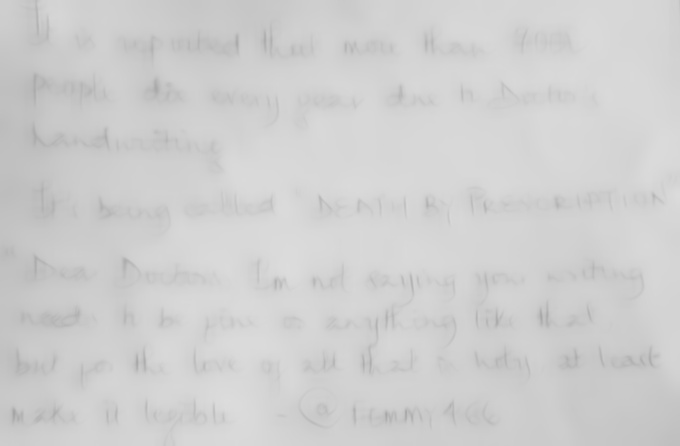 It is reported that more than
people die every year due to Doctor's
handwriting
It's being called "DEATH BY PRESCRIPTION"
"Dear Doctors I'm not saying your writing
needs to be or anything like that
but for the love of all that is holy, at least
make it legible - @